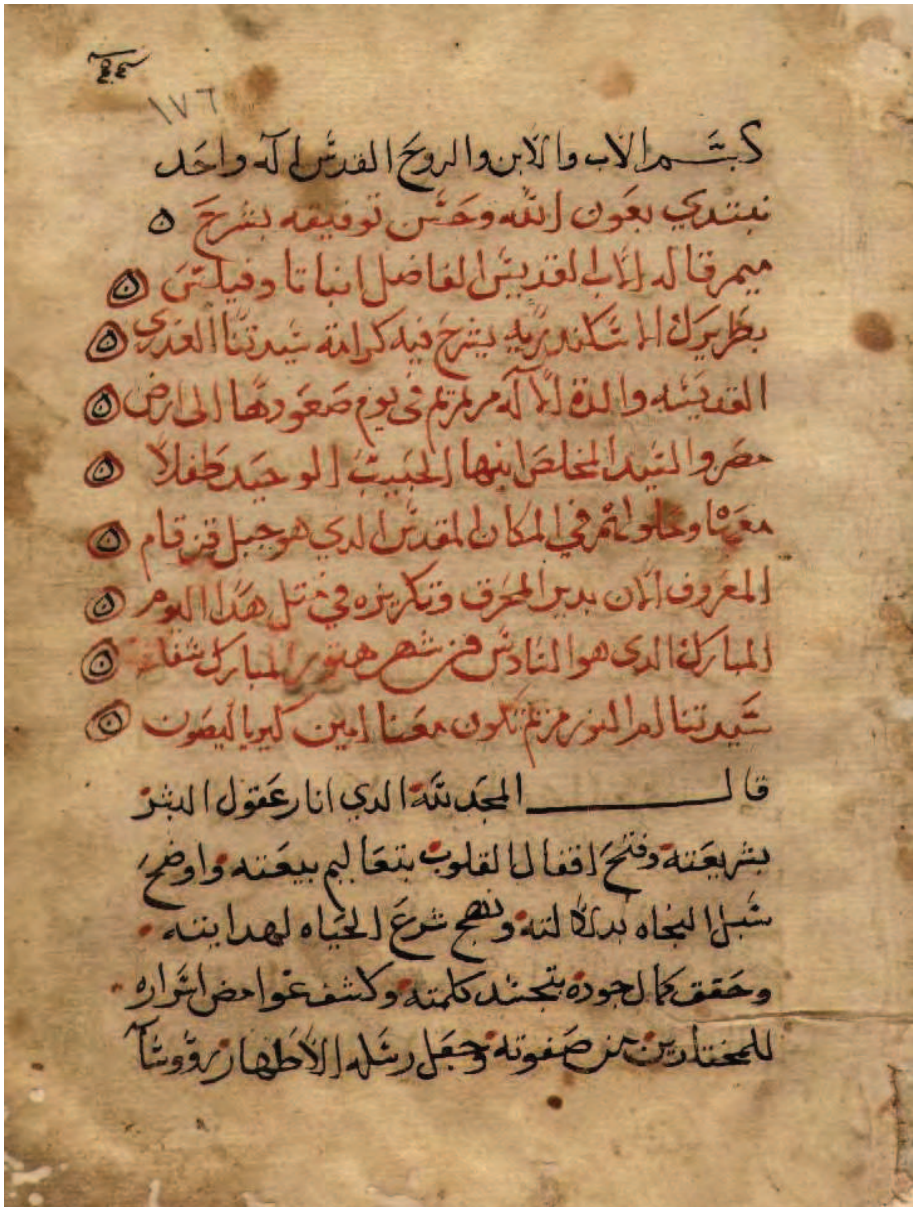 ١٧٦
بسم الاب والابن والروح القدس اله واحد
نبتدي بعون الله وحسن توفيقه بشرح
ميمر قاله الاب القديس الفاضل انبا تاوفيلس
بطريرك الاسكندريه يشرح فيه كرامة سيدتنا العدري
القديسه والدة الاله مرتمريم في يوم صعودها الى ارض
مصر والسيد المخلص ابنها الحبيب الوحيد طفلاً
معها وحلولهم في المكان المقدس الدي هو جبل قزقام
المعروف الان بدير المحرق وتكريزه في متل هدا اليوم
المبارك الدي هو السادس من شهر هتور المبارك شفاعة
سيدتنا ام النور مريم تكون معنا امين كيرياليصون
قال المجد لله الدي انار عقول البشر
بشريعته وفتح اقفال القلوب بتعاليم بيعته واوضح
سبل النجاه بدلالته ونهج شرع الحياه لهدايته
وحقق كمال جوده بتجسد كلمته وكشف غوامض اسراره
للمختارين من صفوته وجعل رسله الاطهار رؤوسآ